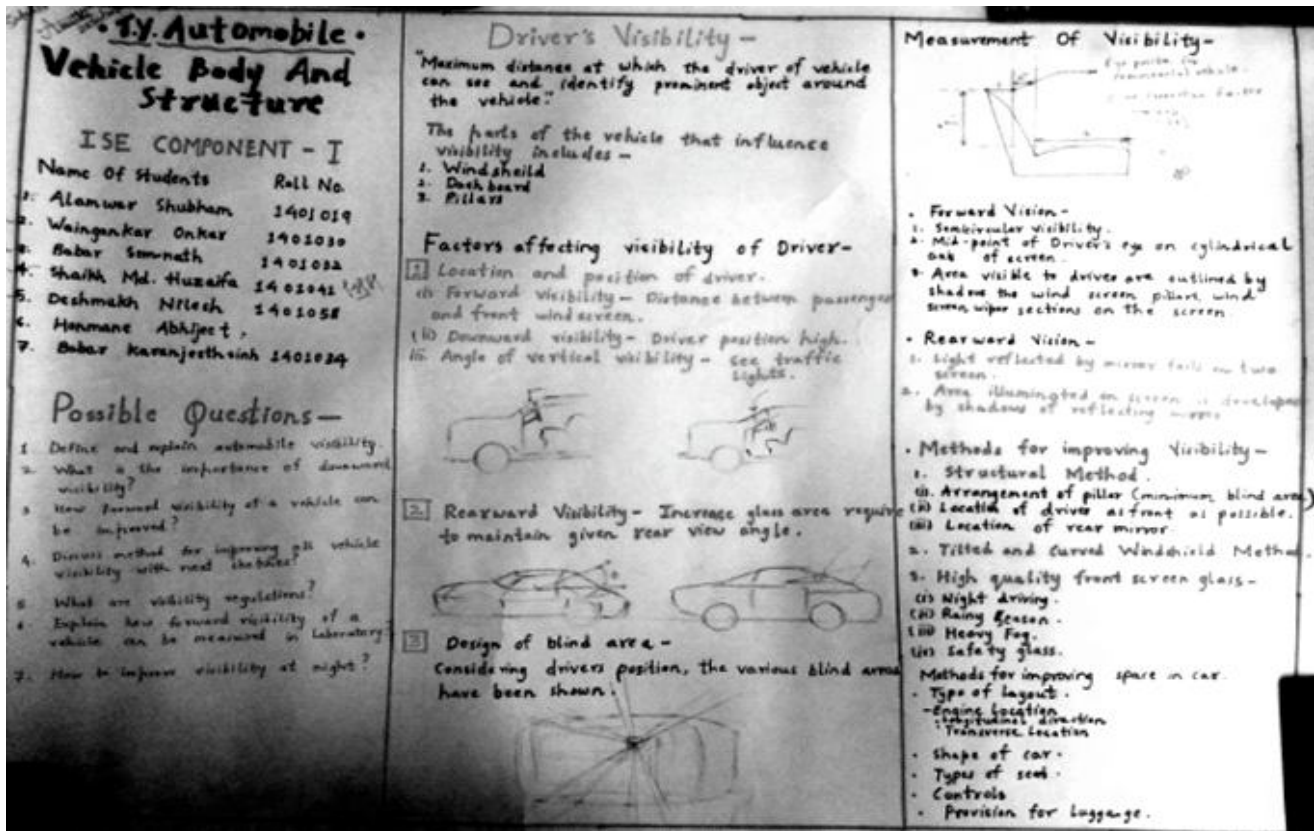 T.Y. Automobile
Vehicle Body And
Structure
ISE COMPONENT - I
Name Of Students Roll No.
1. Alanwar Shubham 1401019
2. Waingankar Onkar 1401030
3. Babar Somnath 1401032
4. Shaikh Md. Huzaifa 1401041
5. Deshmukh Nilesh 1401058
6. Honmane Abhijeet
7. Babar Karanjeethsinh 1401024
Possible Questions—
1. Define and explain automobile visibility.
2. What is the importance of downward
visibility?
3. How forward visibility of a vehicle can
be improved?
4. Discuss method for improving all vehicle
visibility with neat sketches?
5. What are visibility regulations?
6. Explain how forward visibility of a
vehicle can be measured in Laboratory.
7. How to improve visibility at night?
Driver's Visibility—
"Maximum distance at which the driver of vehicle
can see and identify prominent object around
the vehicle."
The parts of the vehicle that influence
visibility includes—
1. Windsheild
2. Dashboard
3. Pillars
Factors affecting visibility of Driver—
1 Location and position of driver.
(i) Forward visibility — Distance between passenger
and front windscreen.
(ii) Downward visibility — Driver position high.
iii. Angle of vertical visibility — see traffic
lights.
2 Rearward Visibility — Increase glass area require
to maintain given rear view angle.
3 Design of blind area —
Considering drivers position, the various blind areas
have been shown.
Measurement Of Visibility—
Eye position for
commercial vehicle.
• Forward Vision—
1. Semicircular visibility.
2. Mid-point of Driver's eye on cylindrical
axis of screen.
3. Area visible to driver are outlined by
shadow the wind screen pillars, wind
screen wiper sections on the screen
• Rearward Vision—
1. Light reflected by mirror falls on two
screen.
2. Area illuminated on screen is developed
by shadows of reflecting mirror
• Methods for improving Visibility—
1. Structural Method.
(i). Arrangement of pillar (minimum blind area)
(ii) Location of driver as front as possible.
(iii) Location of rear mirror.
2. Tilted and Curved Windshield Method.
3. High quality front screen glass—
(i) Night driving.
(ii) Rainy Season.
(iii) Heavy Fog.
(iv) Safety glass.
Methods for improving space in car.
• Type of layout.
- Engine Location
• Longitudinal direction
• Transverse Location
• Shape of car.
• Types of seat.
• Controls
• Provision for Luggage.